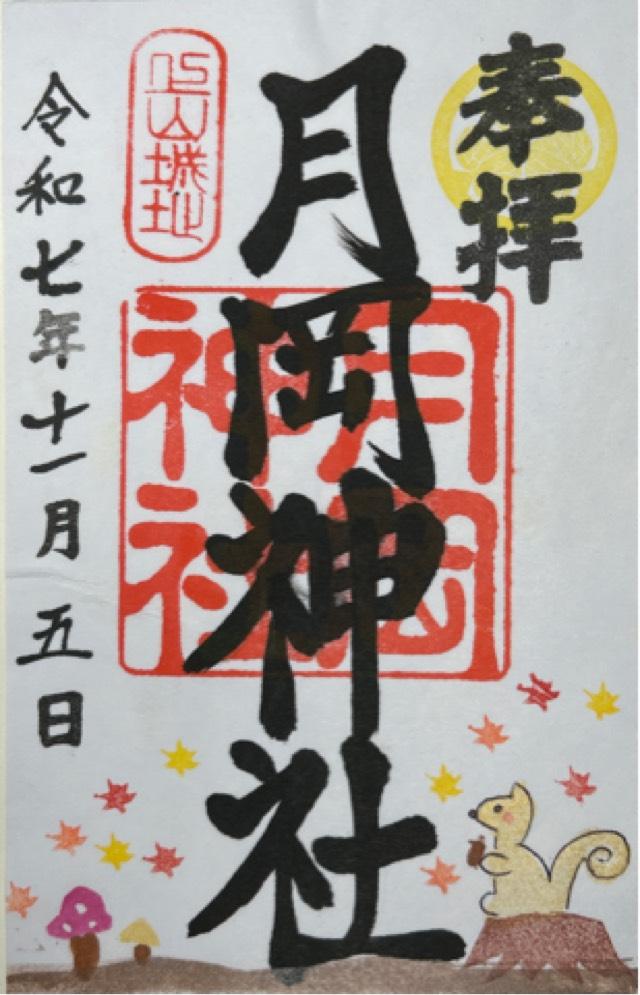 奉拝
月岡神社
月岡
神社
上山城址
令和七年十一月五日